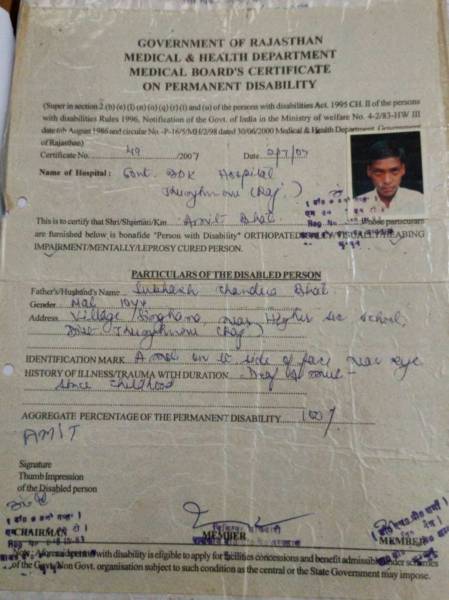 GOVERNMENT OF RAJASTHAN
MEDICAL & HEALTH DEPARTMENT
MEDICAL BOARD'S CERTIFICATE
ON PERMANENT DISABILITY
(Super in section 2 (b) (e) (l) (n) (o) (q) (r) (t) and (u) of the persons with disabilities Act. 1995 CH. II of the persons
with disabilities Rules 1996, Notification of the Govt. of India in the Ministry of welfare No. 4-2/83-HW III
date 6th August 1986 and circular No. -P-16/5/MH/2/98 dated 30/06/2000 Medical & Health Department Government
of Rajasthan)
Certificate No. 49 /2007 Date 2/7/07
Name of Hospital: Govt. BDK Hospital
Jhunjhunu (Raj.)
This is to certify that Shri/Shrimati/Km Amit Bhal Whose particulars
are furnished below is bonafide "Person with Disability" ORTHOPAEDICALLY/VISUALLY/HEARING
IMPAIRMENT/MENTALLY/LEPROSY CURED PERSON.
PARTICULARS OF THE DISABLED PERSON
Father's/Husband's Name Subhash Chandra Bhal
Gender Mal
Address Village Singhana, near Higher sec school,
Dist. Jhunjhunu (Raj)
IDENTIFICATION MARK A mol on side of face near eye
HISTORY OF ILLNESS/TRAUMA WITH DURATION Deaf & mute -
since childhood
AGGREGATE PERCENTAGE OF THE PERMANENT DISABILITY 100%
AMIT
Signature
Thumb Impression
of the Disabled person
CHAIRMAN MEMBER MEMBER
Note: person with disability is eligible to apply for facilities concessions and benefit admissible under schemes
of the Govt./Non Govt. organisation subject to such condition as the central or the State Government may impose.